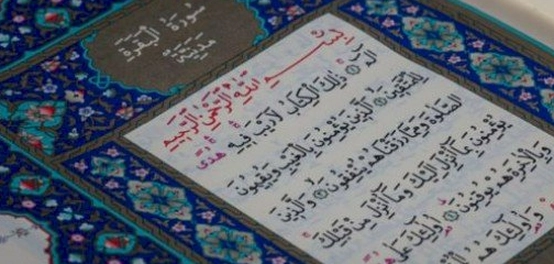 سُورَةُ الْبَقَرَةِ
مَدَنِيَّة
بِسْمِ اللَّهِ الرَّحْمَٰنِ الرَّحِيمِ
الٓمٓ ۝ ذَٰلِكَ الْكِتَابُ لَا رَيْبَ فِيهِ هُدًى
لِلْمُتَّقِينَ ۝ الَّذِينَ يُؤْمِنُونَ بِالْغَيْبِ وَيُقِيمُونَ
الصَّلَوٰةَ وَمِمَّا رَزَقْنَاهُمْ يُنْفِقُونَ ۝ وَالَّذِينَ
يُؤْمِنُونَ بِمَا أُنْزِلَ إِلَيْكَ وَمَا أُنْزِلَ مِنْ قَبْلِكَ
وَبِالْآخِرَةِ هُمْ يُوقِنُونَ ۝ أُولَٰئِكَ عَلَىٰ
وَأُولَٰئِكَ هُمُ